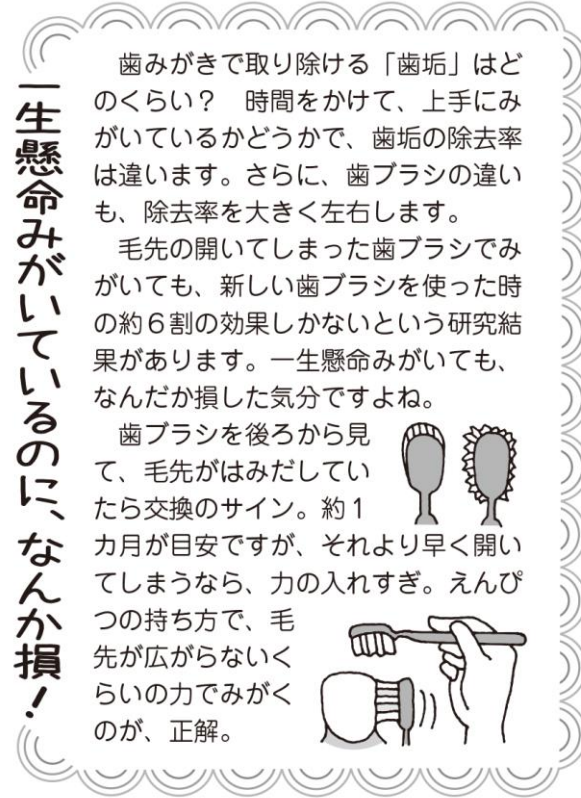 一生懸命みがいているのに、なんか損！
歯みがきで取り除ける「歯垢」はど
のくらい？　時間をかけて、上手にみ
がいているかどうかで、歯垢の除去率
は違います。さらに、歯ブラシの違い
も、除去率を大きく左右します。
毛先の開いてしまった歯ブラシでみ
がいても、新しい歯ブラシを使った時
の約６割の効果しかないという研究結
果があります。一生懸命みがいても、
なんだか損した気分ですよね。
歯ブラシを後ろから見
て、毛先がはみだしてい
たら交換のサイン。約１
カ月が目安ですが、それより早く開い
てしまうなら、力の入れすぎ。えんぴ
つの持ち方で、毛
先が広がらないく
らいの力でみがく
のが、正解。